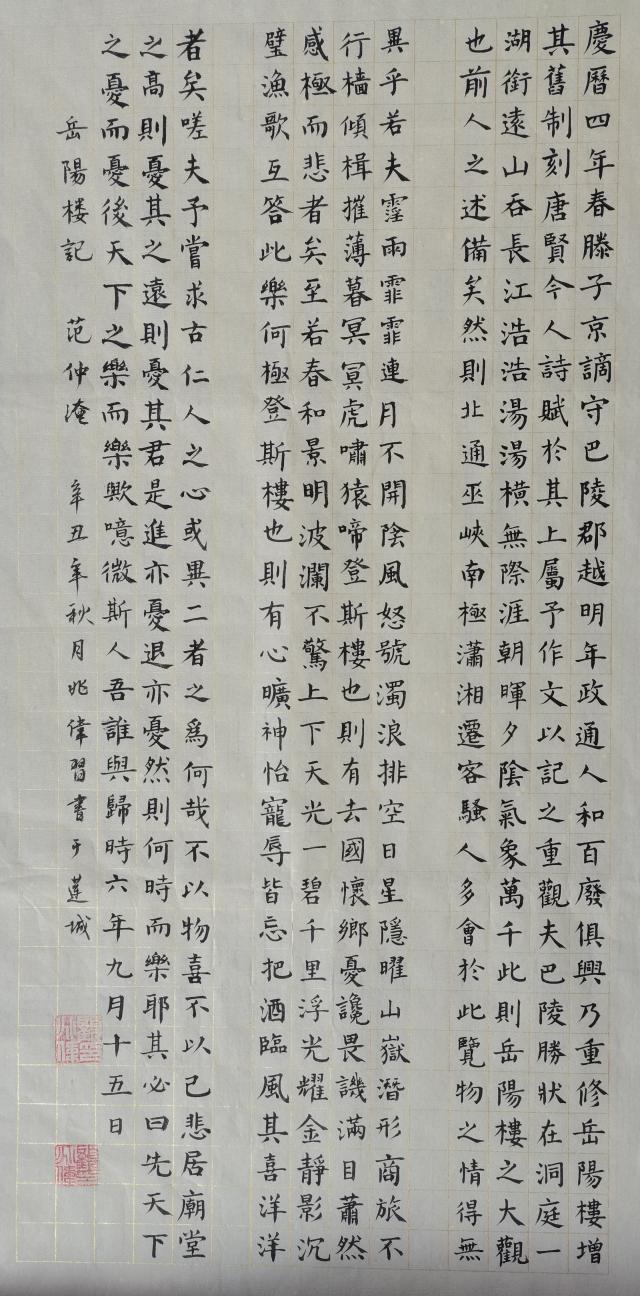 慶曆四年春滕子京謫守巴陵郡越明年政通人和百廢俱興乃重修岳陽樓增
其舊制刻唐賢今人詩賦於其上屬予作文以記之重觀夫巴陵勝狀在洞庭一
湖銜遠山吞長江浩浩湯湯橫無際涯朝暉夕陰氣象萬千此則岳陽樓之大觀
也前人之述備矣然則北通巫峽南極瀟湘遷客騷人多會於此覽物之情得無
異乎若夫霪雨霏霏連月不開陰風怒號濁浪排空日星隱曜山嶽潛形商旅不
行檣傾楫摧薄暮冥冥虎嘯猿啼登斯樓也則有去國懷鄉憂讒畏譏滿目蕭然
感極而悲者矣至若春和景明波瀾不驚上下天光一碧千里浮光耀金靜影沉
璧漁歌互答此樂何極登斯樓也則有心曠神怡寵辱皆忘把酒臨風其喜洋洋
者矣嗟夫予嘗求古仁人之心或異二者之爲何哉不以物喜不以己悲居廟堂
之高則憂其之遠則憂其君是進亦憂退亦憂然則何時而樂耶其必曰先天下
之憂而憂後天下之樂而樂歟噫微斯人吾誰與歸時六年九月十五日
岳陽楼記 范仲淹 辛丑年秋月兆偉習書于蓮城